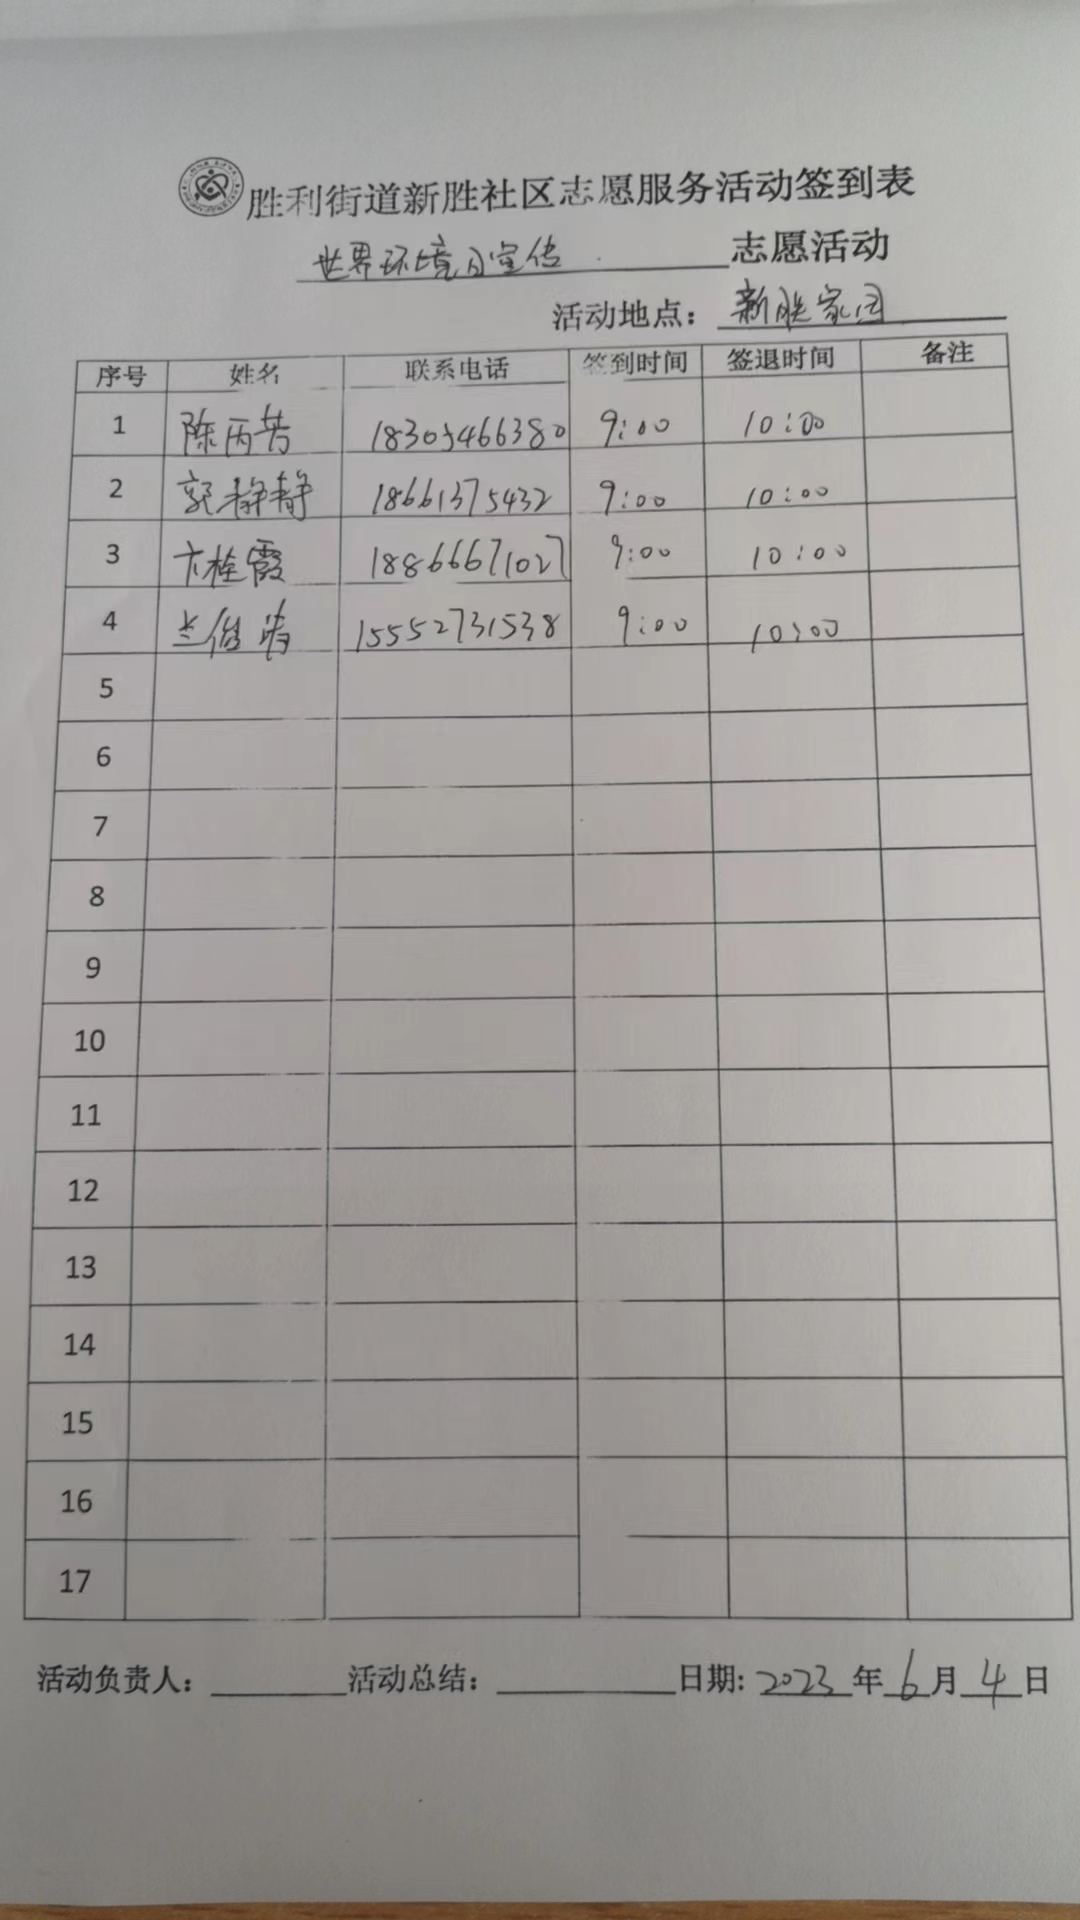 胜利街道新胜社区志愿服务活动签到表
世界环境日宣传 志愿活动
活动地点：新胜家园
序号 姓名 联系电话 签到时间 签退时间 备注
1 陈丙芳 18305466380 9:00 10:00
2 郭静静 18661375432 9:00 10:00
3 卞桂霞 18866671027 9:00 10:00
4 兰 15552731538 9:00 10:00
5
6
7
8
9
10
11
12
13
14
15
16
17
活动负责人： 活动总结： 日期: 2023 年 6 月 4 日